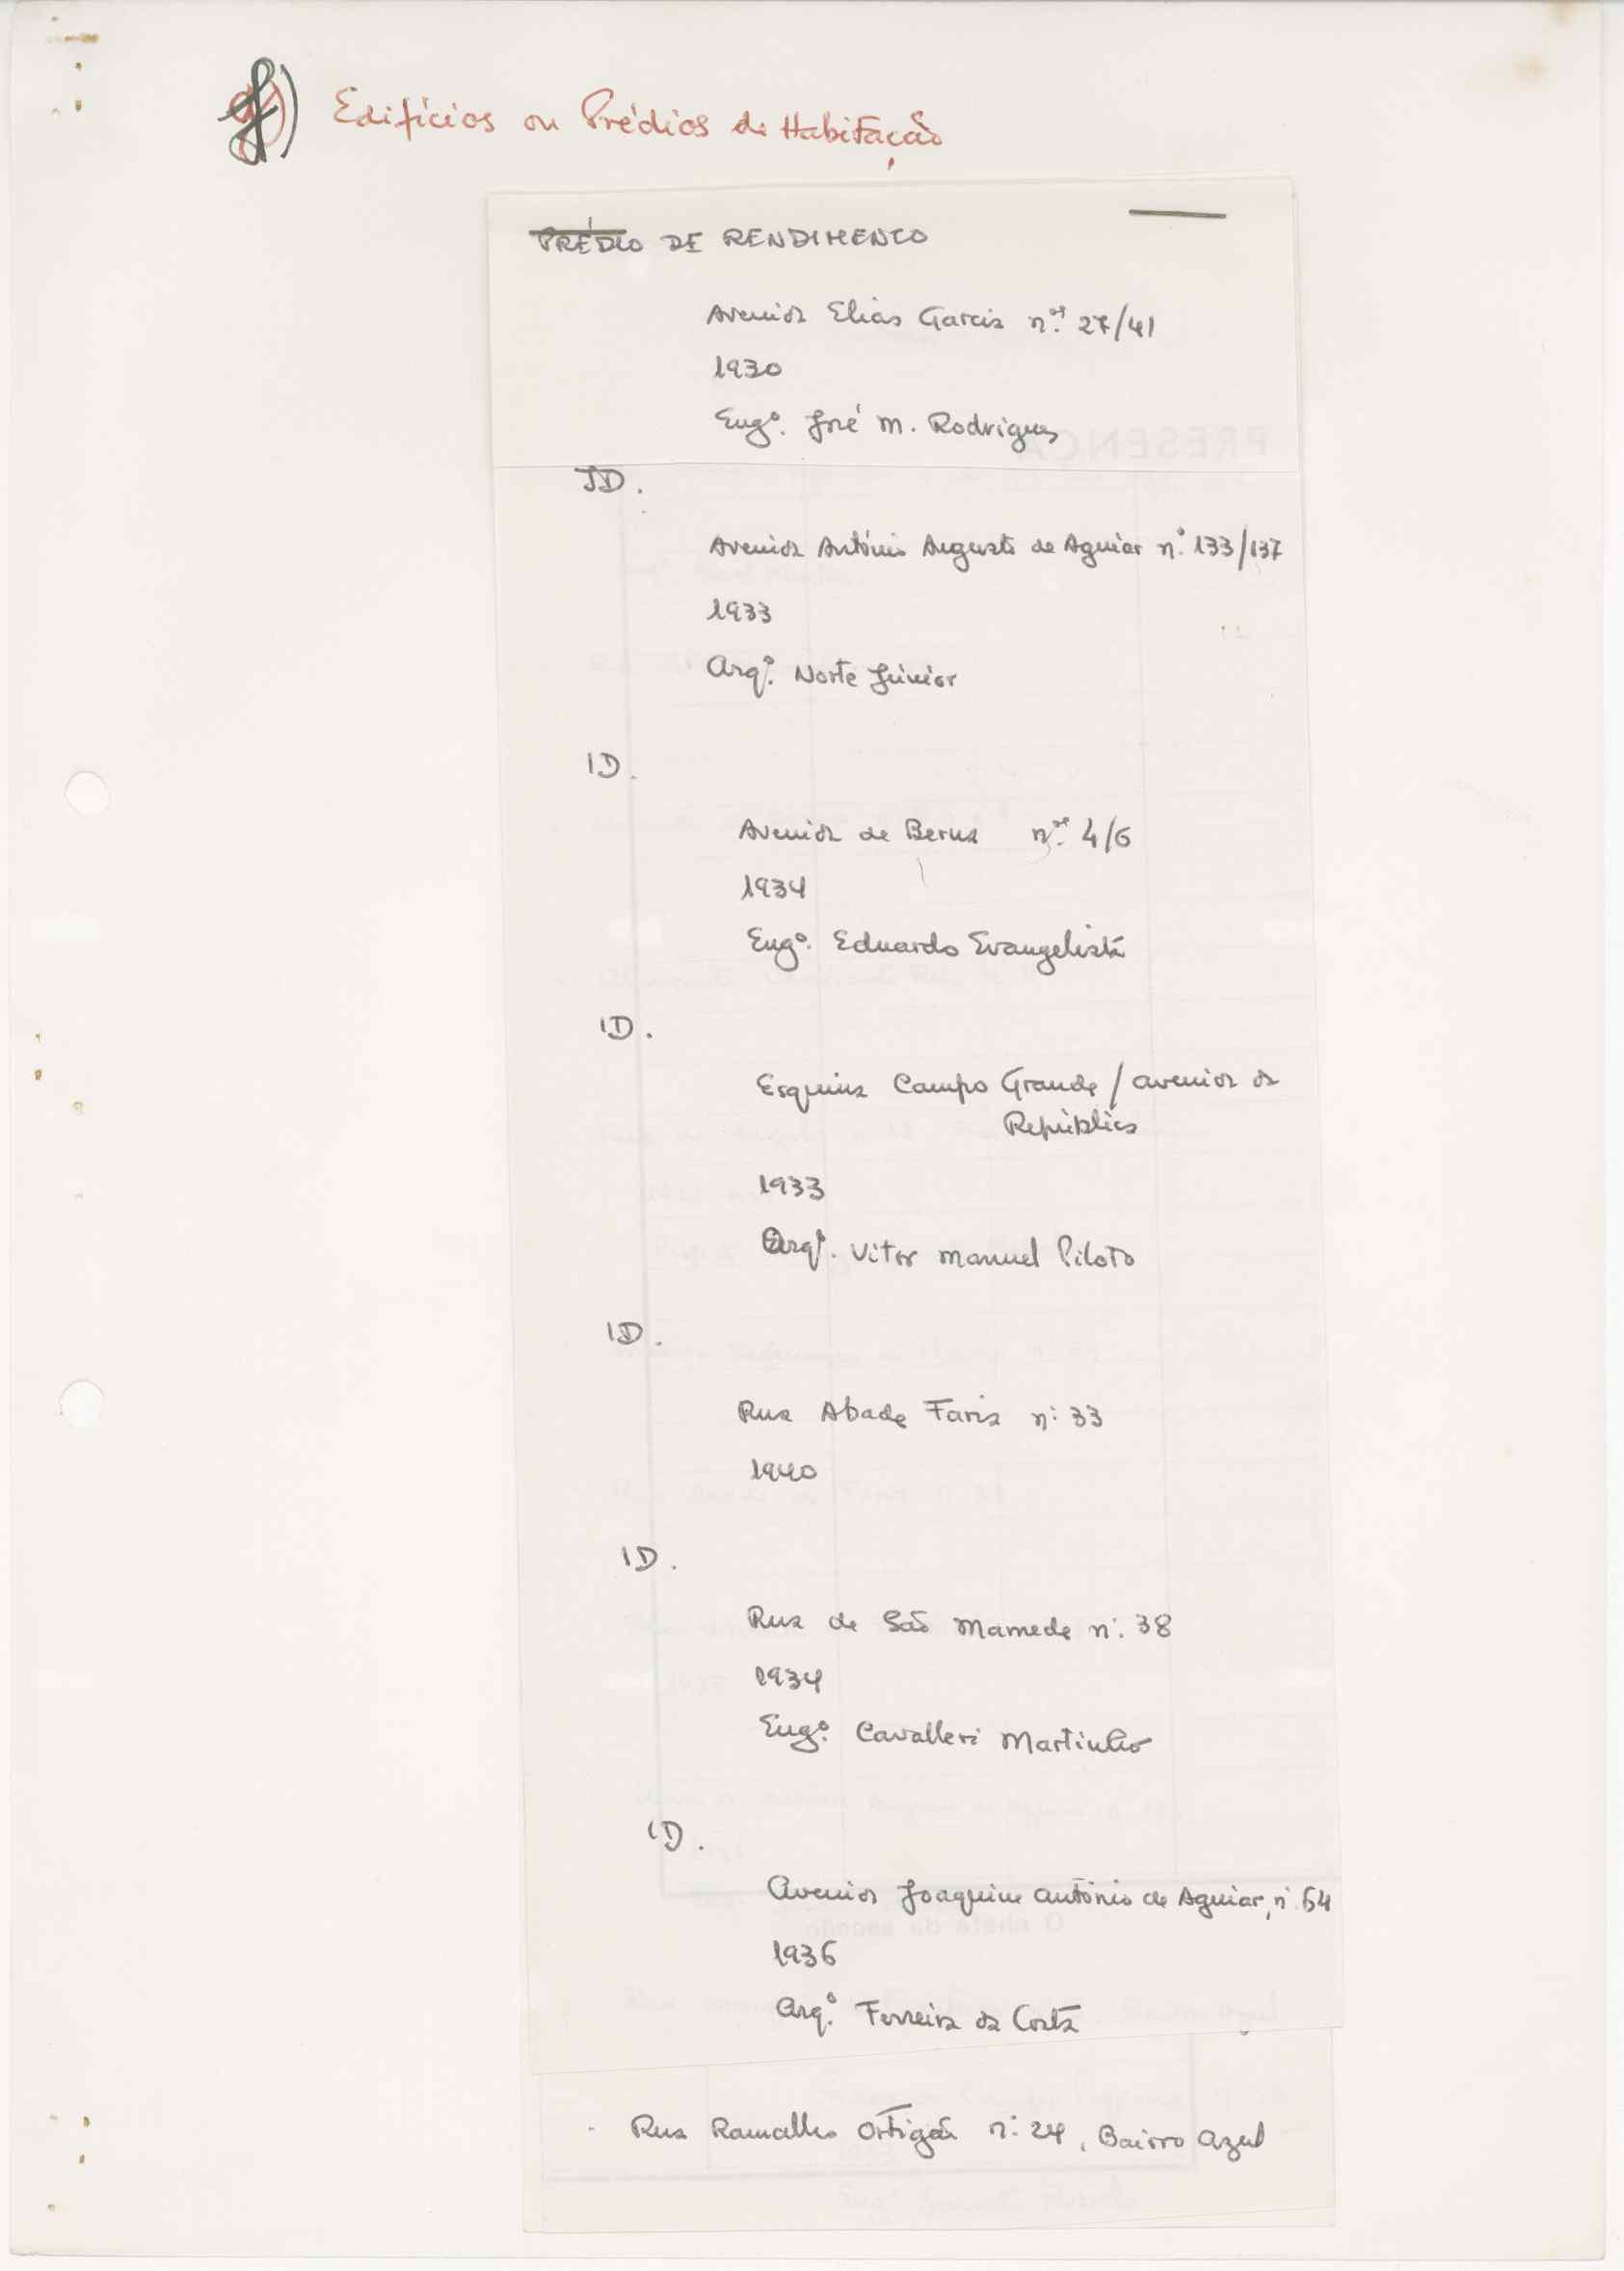 f) Edifícios ou Prédios de Habitação
PRÉDIO DE RENDIMENTO
Avenida Elias Garcia n.os 27/41
1930
Engº. José M. Rodrigues
ID.
Avenida António Augusto de Aguiar nº. 133/137
1933
Arqº. Norte Júnior
ID.
Avenida de Berna n.os 4/6
1934
Engº. Eduardo Evangelista
ID.
Esquina Campo Grande / Avenida da
República
1933
Arqº. Vitor Manuel Piloto
ID.
Rua Abade Faria nº. 33
1940
ID.
Rua de São Mamede nº. 38
1934
Engº. Cavalleri Martinho
ID.
Avenida Joaquim António de Aguiar, nº. 64
1936
Arqº. Ferreira da Costa
- Rua Ramalho Ortigão nº. 24, Bairro Azul